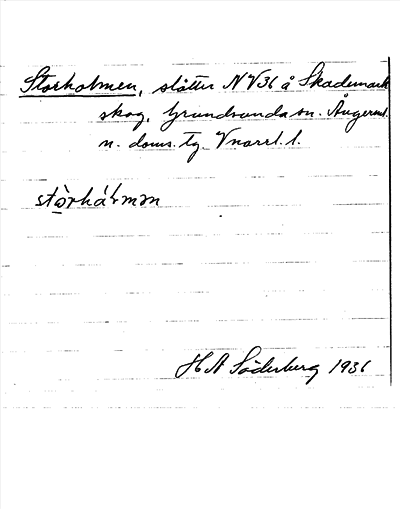 Storholmen, slåtter N V36 å Skademark
skog, Grundsunda sn. Ångerml.
n. doms. tg. Vnorrl. l.
stòrhál̥mən
H A Söderberg 1936